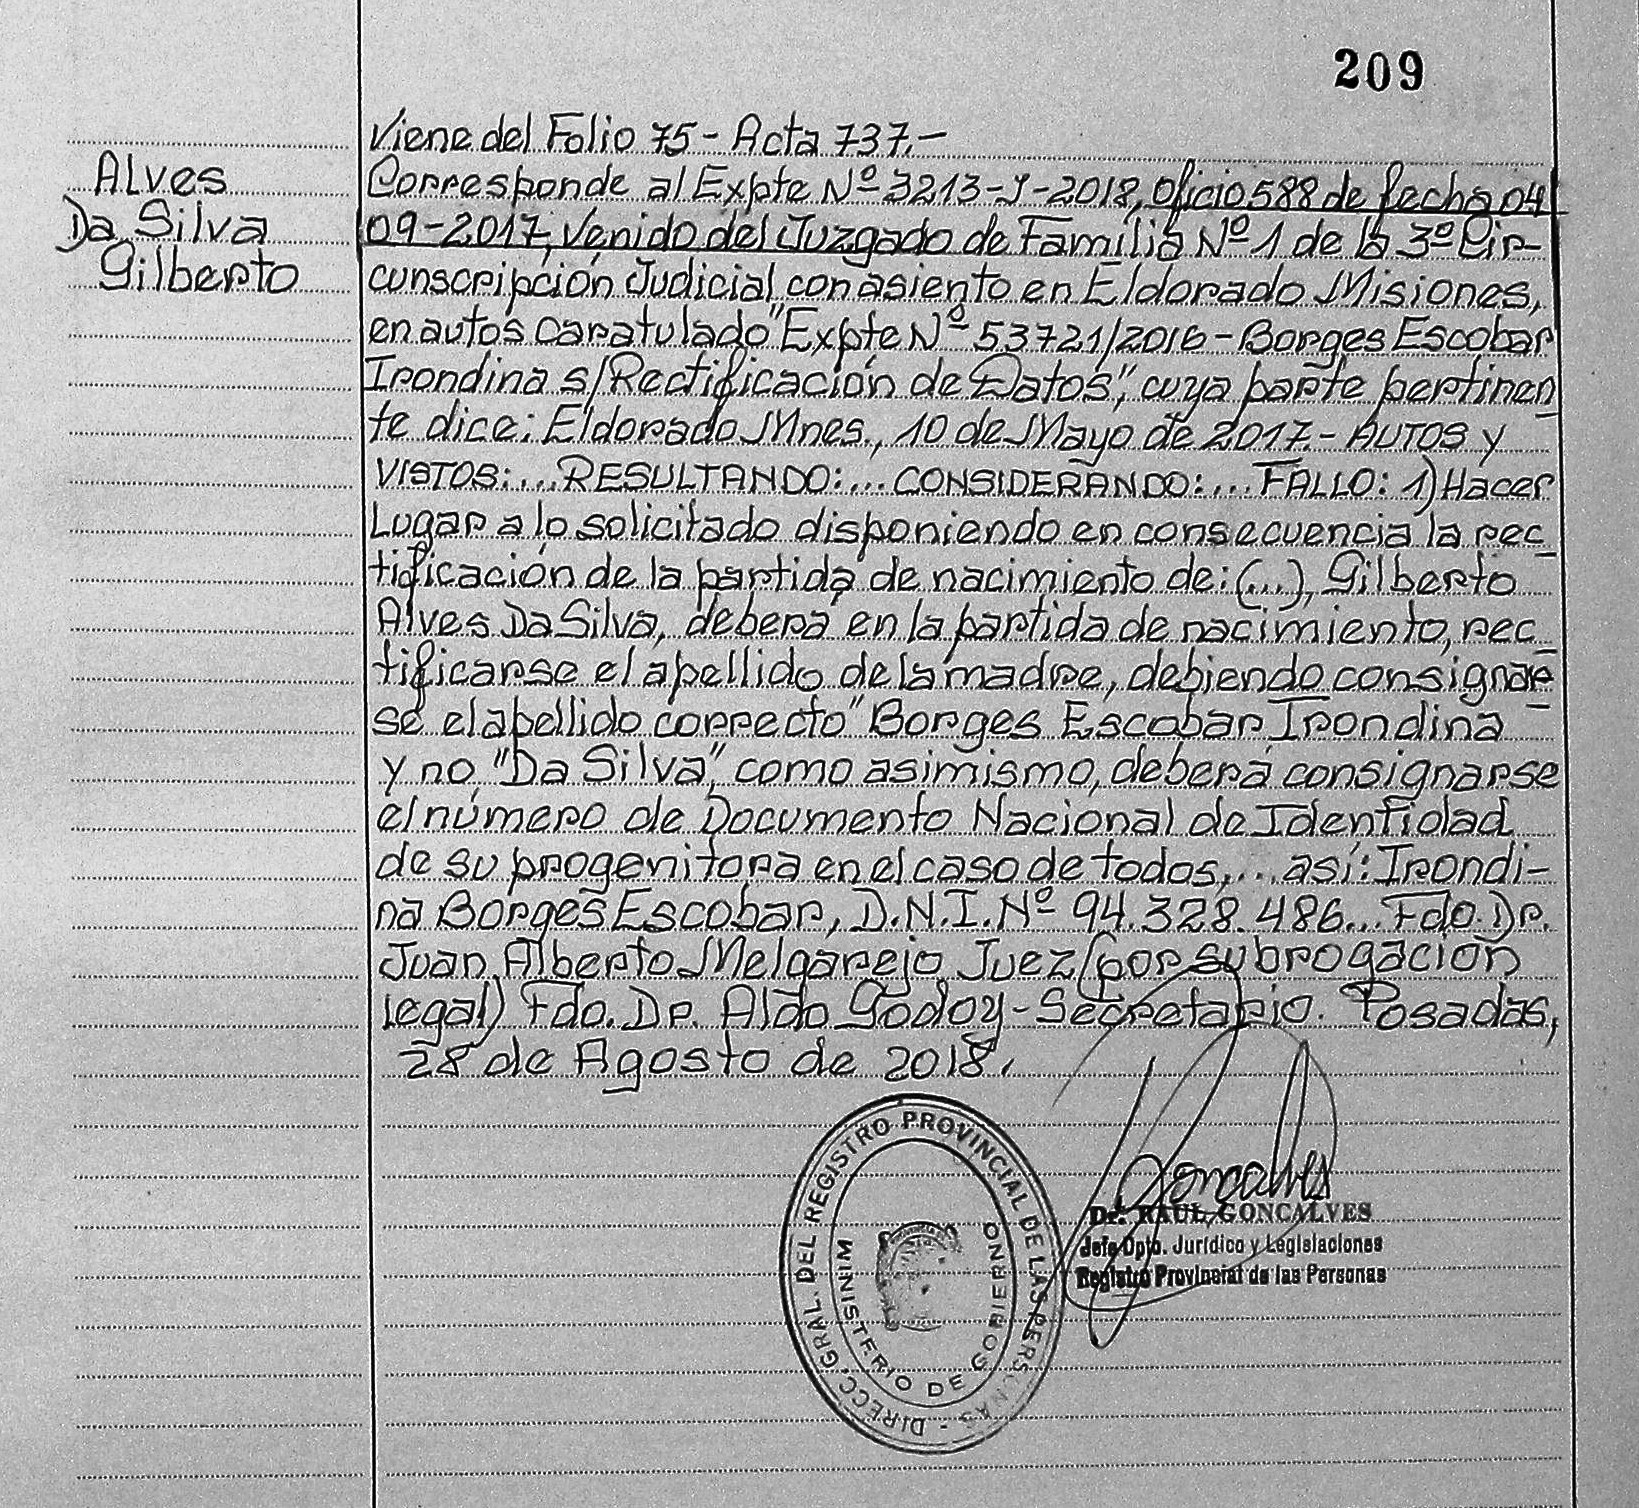 209
Viene del Folio 75 - Acta 737.-
Alves
Da Silva
Gilberto
Corresponde al Expte Nº 3213-J-2018, Oficio 588 de fecha 04
09-2017, Venido del Juzgado de Familia Nº 1 de la 3º Cir-
cunscripción Judicial con asiento en Eldorado Misiones,
en autos caratulado "Expte Nº 53721/2016 - Borges Escobar
Irondina s/Rectificación de Datos", cuya parte pertinen
te dice: Eldorado Mnes., 10 de Mayo de 2017.- AUTOS y
VISTOS:... RESULTANDO:... CONSIDERANDO:... FALLO: 1) Hacer
Lugar a lo solicitado disponiendo en consecuencia la rec_
tificación de la partida de nacimiento de: (...), Gilberto
Alves Da Silva, deberá en la partida de nacimiento, rec_
tificarse el apellido de la madre, debiendo consignar_
se el apellido correcto "Borges Escobar, Irondina
y no "Da Silva", como asimismo, deberá consignarse
el número de Documento Nacional de Identidad
de su progenitora en el caso de todos,... así: Irondi-
na Borges Escobar, D.N.I. Nº 94.328.486... Fdo. Dr.
Juan Alberto Melgarejo Juez (por subrogación
legal) Fdo. Dr. Aldo Godoy - Secretario. Posadas,
28 de Agosto de 2018.
DIRECC. GRAL. DEL REGISTRO PROVINCIAL DE LAS PERSONAS -
MINISTERIO DE GOBIERNO
Goncalves
Dr. RAUL GONCALVES
Jefe Dpto. Jurídico y Legislaciones
Registro Provincial de las Personas